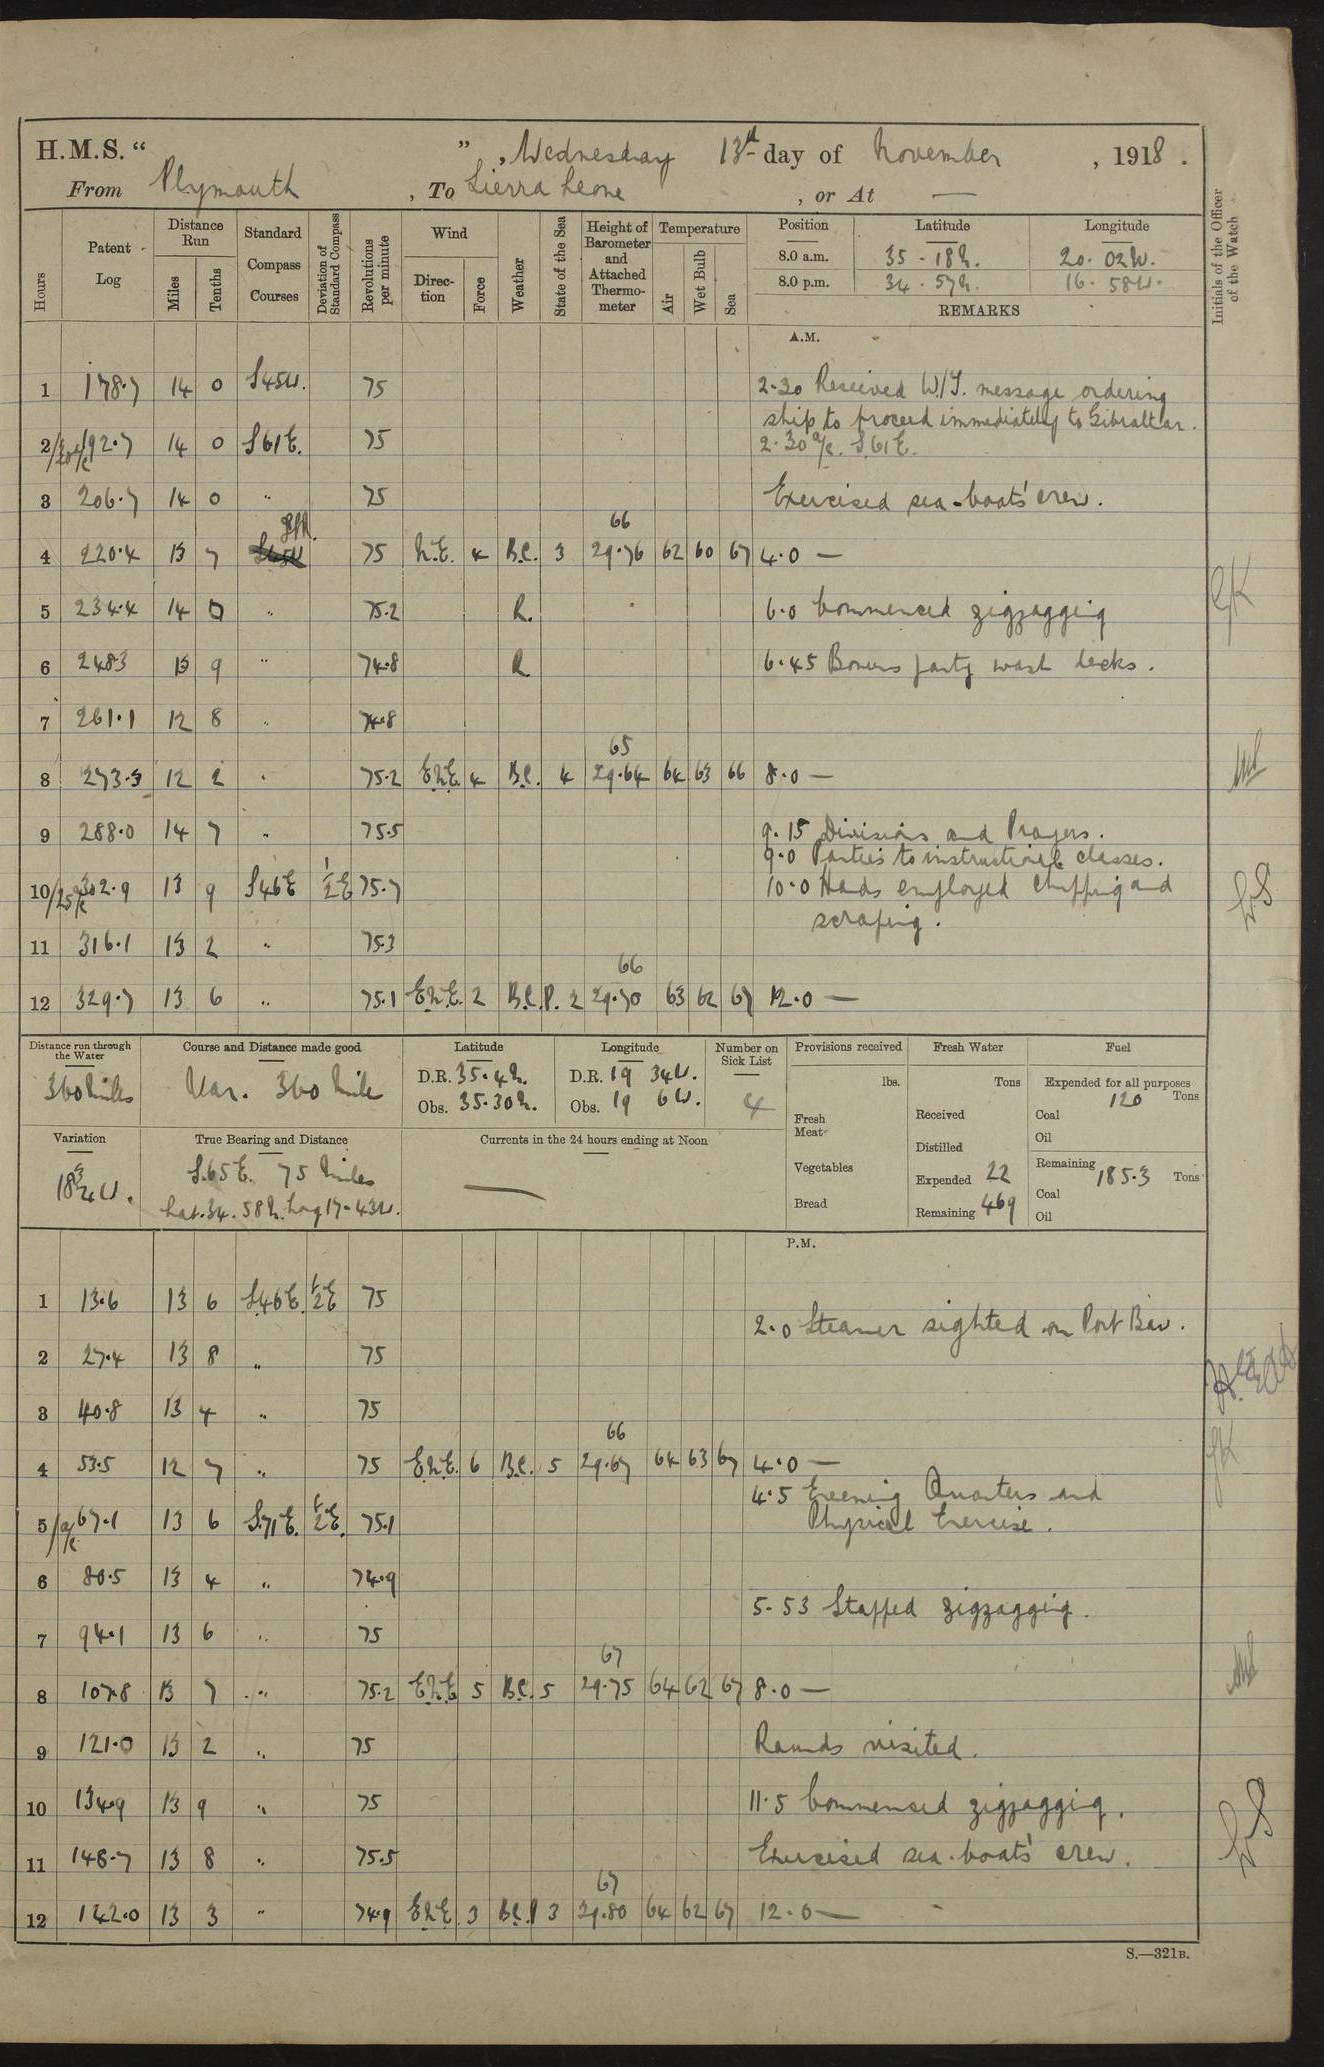 H.M.S. “ ” , Wednesday 13th day of November , 1918 .
From Plymouth , To Sierra Leone , or At —
Hours
Patent Log
Distance Run
Miles
Tenths
Standard Compass Courses
Deviation of Standard Compass
Revolutions per minute
Wind
Direction
Force
Weather
State of the Sea
Height of Barometer and Attached Thermometer
Temperature
Air
Wet Bulb
Sea
Position Latitude Longitude
8.0 a.m. 35 . 18 N. 20 . 02 W.
8.0 p.m. 34 . 57 N. 16 . 58 W.
REMARKS
Initials of the Officer of the Watch
A.M.
1 178.7 14 0 S45W. 75 2.30 Received W/T. message ordering
ship to proceed immediately to Gibraltar.
2/30 a/c 192.7 14 0 S61E. 75 2.30 a/c. S.61E.
3 206.7 14 0 " 75 Exercised sea-boats' crew.
66
4 220.4 13 7 75 N.E. 4 B.C. 3 29.76 62 60 67 4.0 —
5 234.4 14 0 " 75.2 R. 6.0 Commenced zigzagging
6 248.3 13 9 " 74.8 R 6.45 Boxers party wash decks.
7 261.1 12 8 " 74.8
65
8 273.3 12 2 " 75.2 E.N.E. 4 B.C. 4 29.64 64 63 66 8.0 —
9 288.0 14 7 " 75.5 9.15 Divisions and Prayers.
9.0 Parties to instructional classes.
10/25 a/c 302.9 13 9 S46E ½E 75.7 10.0 Hands employed chipping and
scraping.
11 316.1 13 2 " 75.3
66
12 329.7 13 6 " 75.1 E.N.E. 2 B.C.P. 2 29.70 63 62 67 12.0 —
Distance run through the Water
360 Miles
Course and Distance made good
Var. 360 Mile
Latitude
D.R. 35.4 N.
Obs. 35.30 N.
Longitude
D.R. 19 34 W.
Obs. 19 6 W.
Number on Sick List
4
Provisions received
lbs.
Fresh Meat
Vegetables
Bread
Fresh Water
Tons
Received
Distilled
Expended 22
Remaining 469
Fuel
Expended for all purposes
120 Tons
Coal
Oil
Remaining 185.3 Tons
Coal
Oil
Variation
18¾ W.
True Bearing and Distance
S.65E. 75 Miles
Lat. 34. 58 N. Long 17.43W.
Currents in the 24 hours ending at Noon
—
P.M.
1 13.6 13 6 S.46E. ½E 75
2.0 Steamer sighted on Port Bow.
2 27.4 13 8 " 75
3 40.8 13 4 " 75
66
4 53.5 12 7 " 75 E.N.E. 6 B.C. 5 29.67 64 63 67 4.0 —
4.5 Evening Quarters and
5/a/c 67.1 13 6 S.71E. ½E. 75.1 Physical Exercise.
6 80.5 13 4 " 74.9
5.53 Stopped zigzagging.
7 94.1 13 6 " 75
67
8 107.8 13 7 " 75.2 E.N.E 5 B.C. 5 29.75 64 62 67 8.0 —
9 121.0 13 2 " 75 Rounds visited.
10 134.9 13 9 " 75 11.5 Commenced zigzagging.
11 148.7 13 8 " 75.5 Exercised sea-boats' crew.
67
12 142.0 13 3 " 74.9 E.N.E. 3 B.C.P 3 29.80 64 62 67 12.0 —
S.—321B.